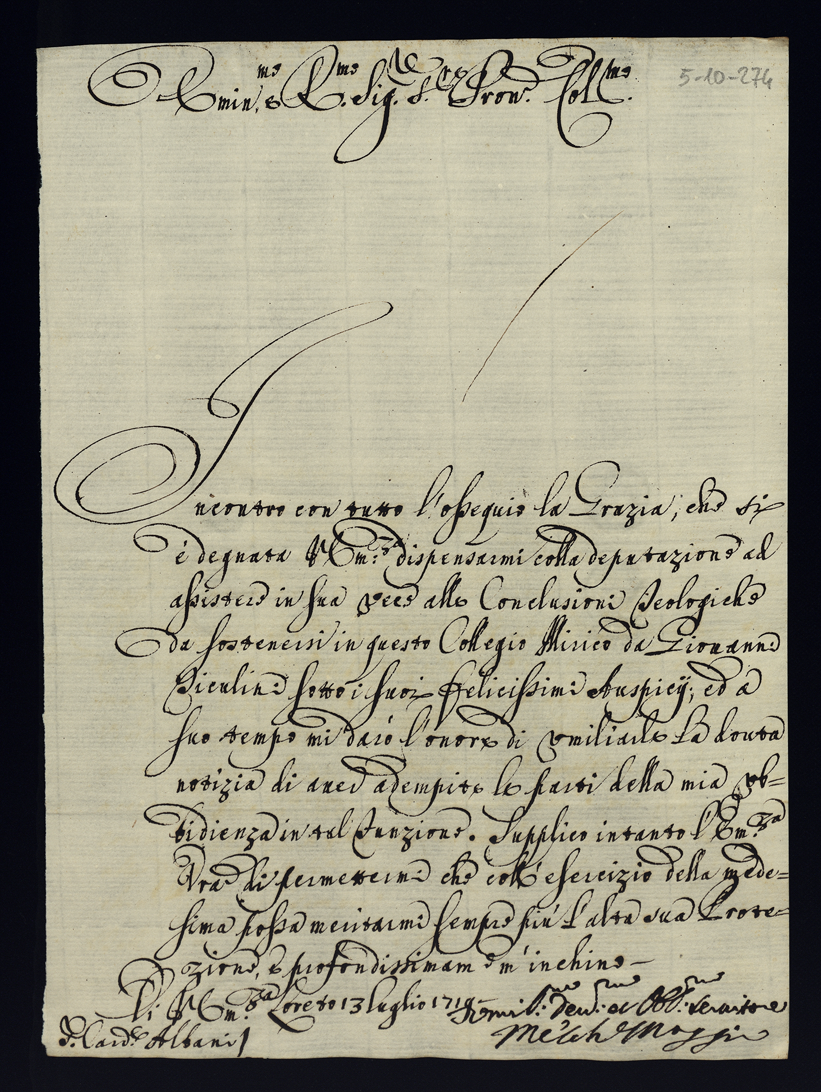 5-10-274
Emin.mo e R.mo Sig.r S.r e Pron. Col.mo
Incontro con tutto l'ossequio la Grazia, che si
è degnata V. Em.za dispensarmi colla deputazione ad
assistere in sua vece alle Conclusioni Teologiche
da sostenersi in questo Collegio Illirico da Giovanni
Piculini sotto i suoi felicissimi Auspicij; ed a
suo tempo mi darò l'onore di umiliarle la dovuta
notizia di aver adempite le parti della mia ub=
bidienza in tal funzione. Supplico intanto l'Em.za
Vra di permettermi che coll'esercizio della mede=
sima possa meritarmi sempre più l'alta sua Prote=
zione, e profondissimam.e m'inchino
Di V. Em.za Loreto 13 luglio 1719
Umil.mo Dev.mo et Obb.mo Servitore
S. Card. Albani
Melch. Maggi